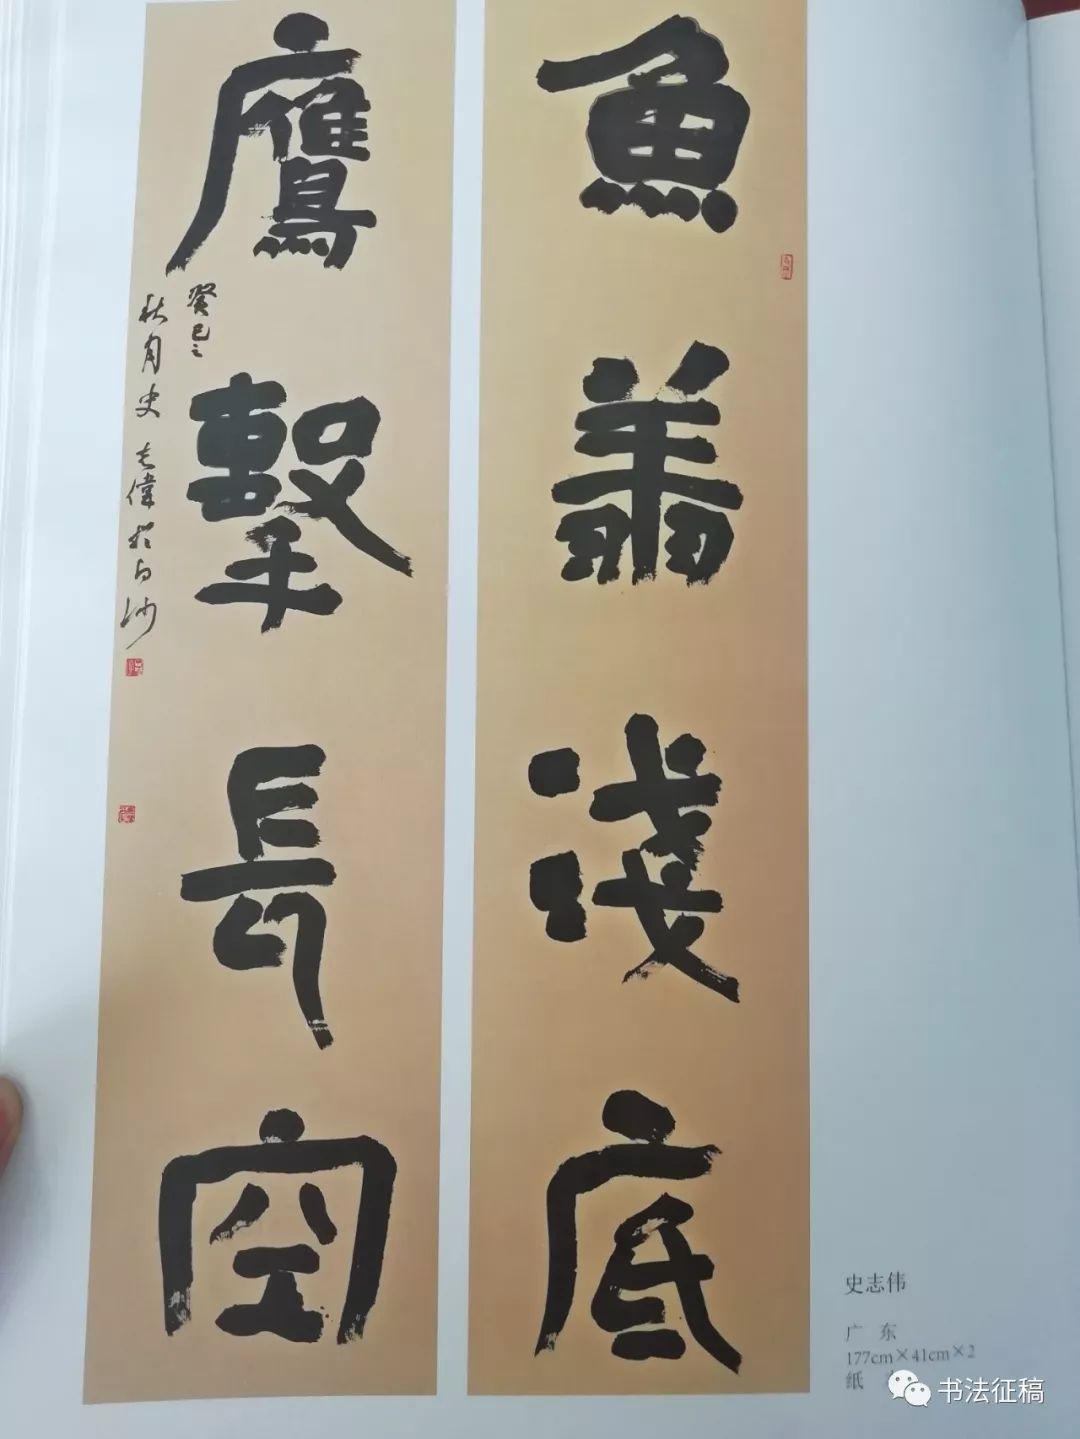 魚翔淺底
鷹擊長空
癸巳之
秋月史志偉於白沙
史志伟
广 东
177cm×41cm×2
纸
书法征稿